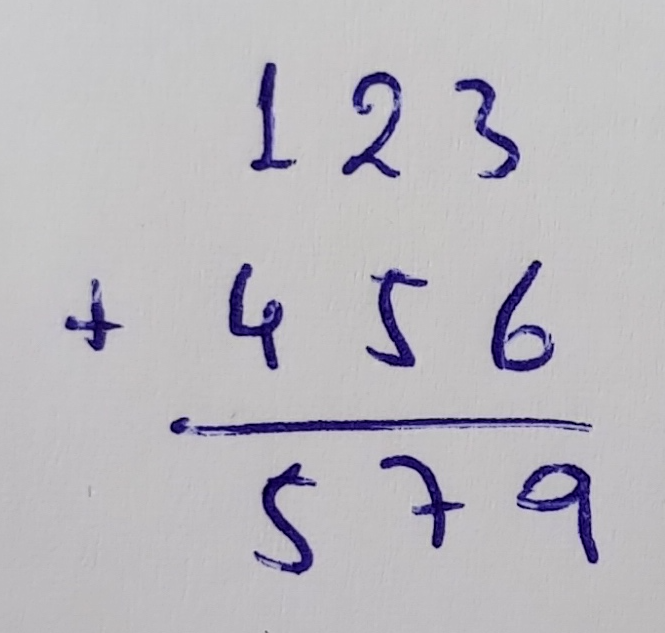 1 2 3
+ 4 5 6
5 7 9